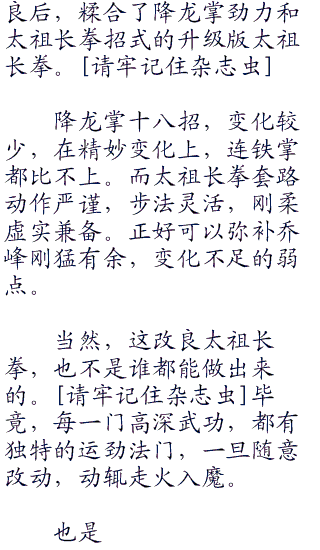 良后，糅合了降龙掌劲力和
太祖长拳招式的升级版太祖
长拳。[请牢记住杂志虫]
降龙掌十八招，变化较
少，在精妙变化上，连铁掌
都比不上。而太祖长拳套路
动作严谨，步法灵活，刚柔
虚实兼备。正好可以弥补乔
峰刚猛有余，变化不足的弱
点。
当然，这改良太祖长
拳，也不是谁都能做出来
的。[请牢记住杂志虫]毕
竟，每一门高深武功，都有
独特的运劲法门，一旦随意
改动，动辄走火入魔。
也是